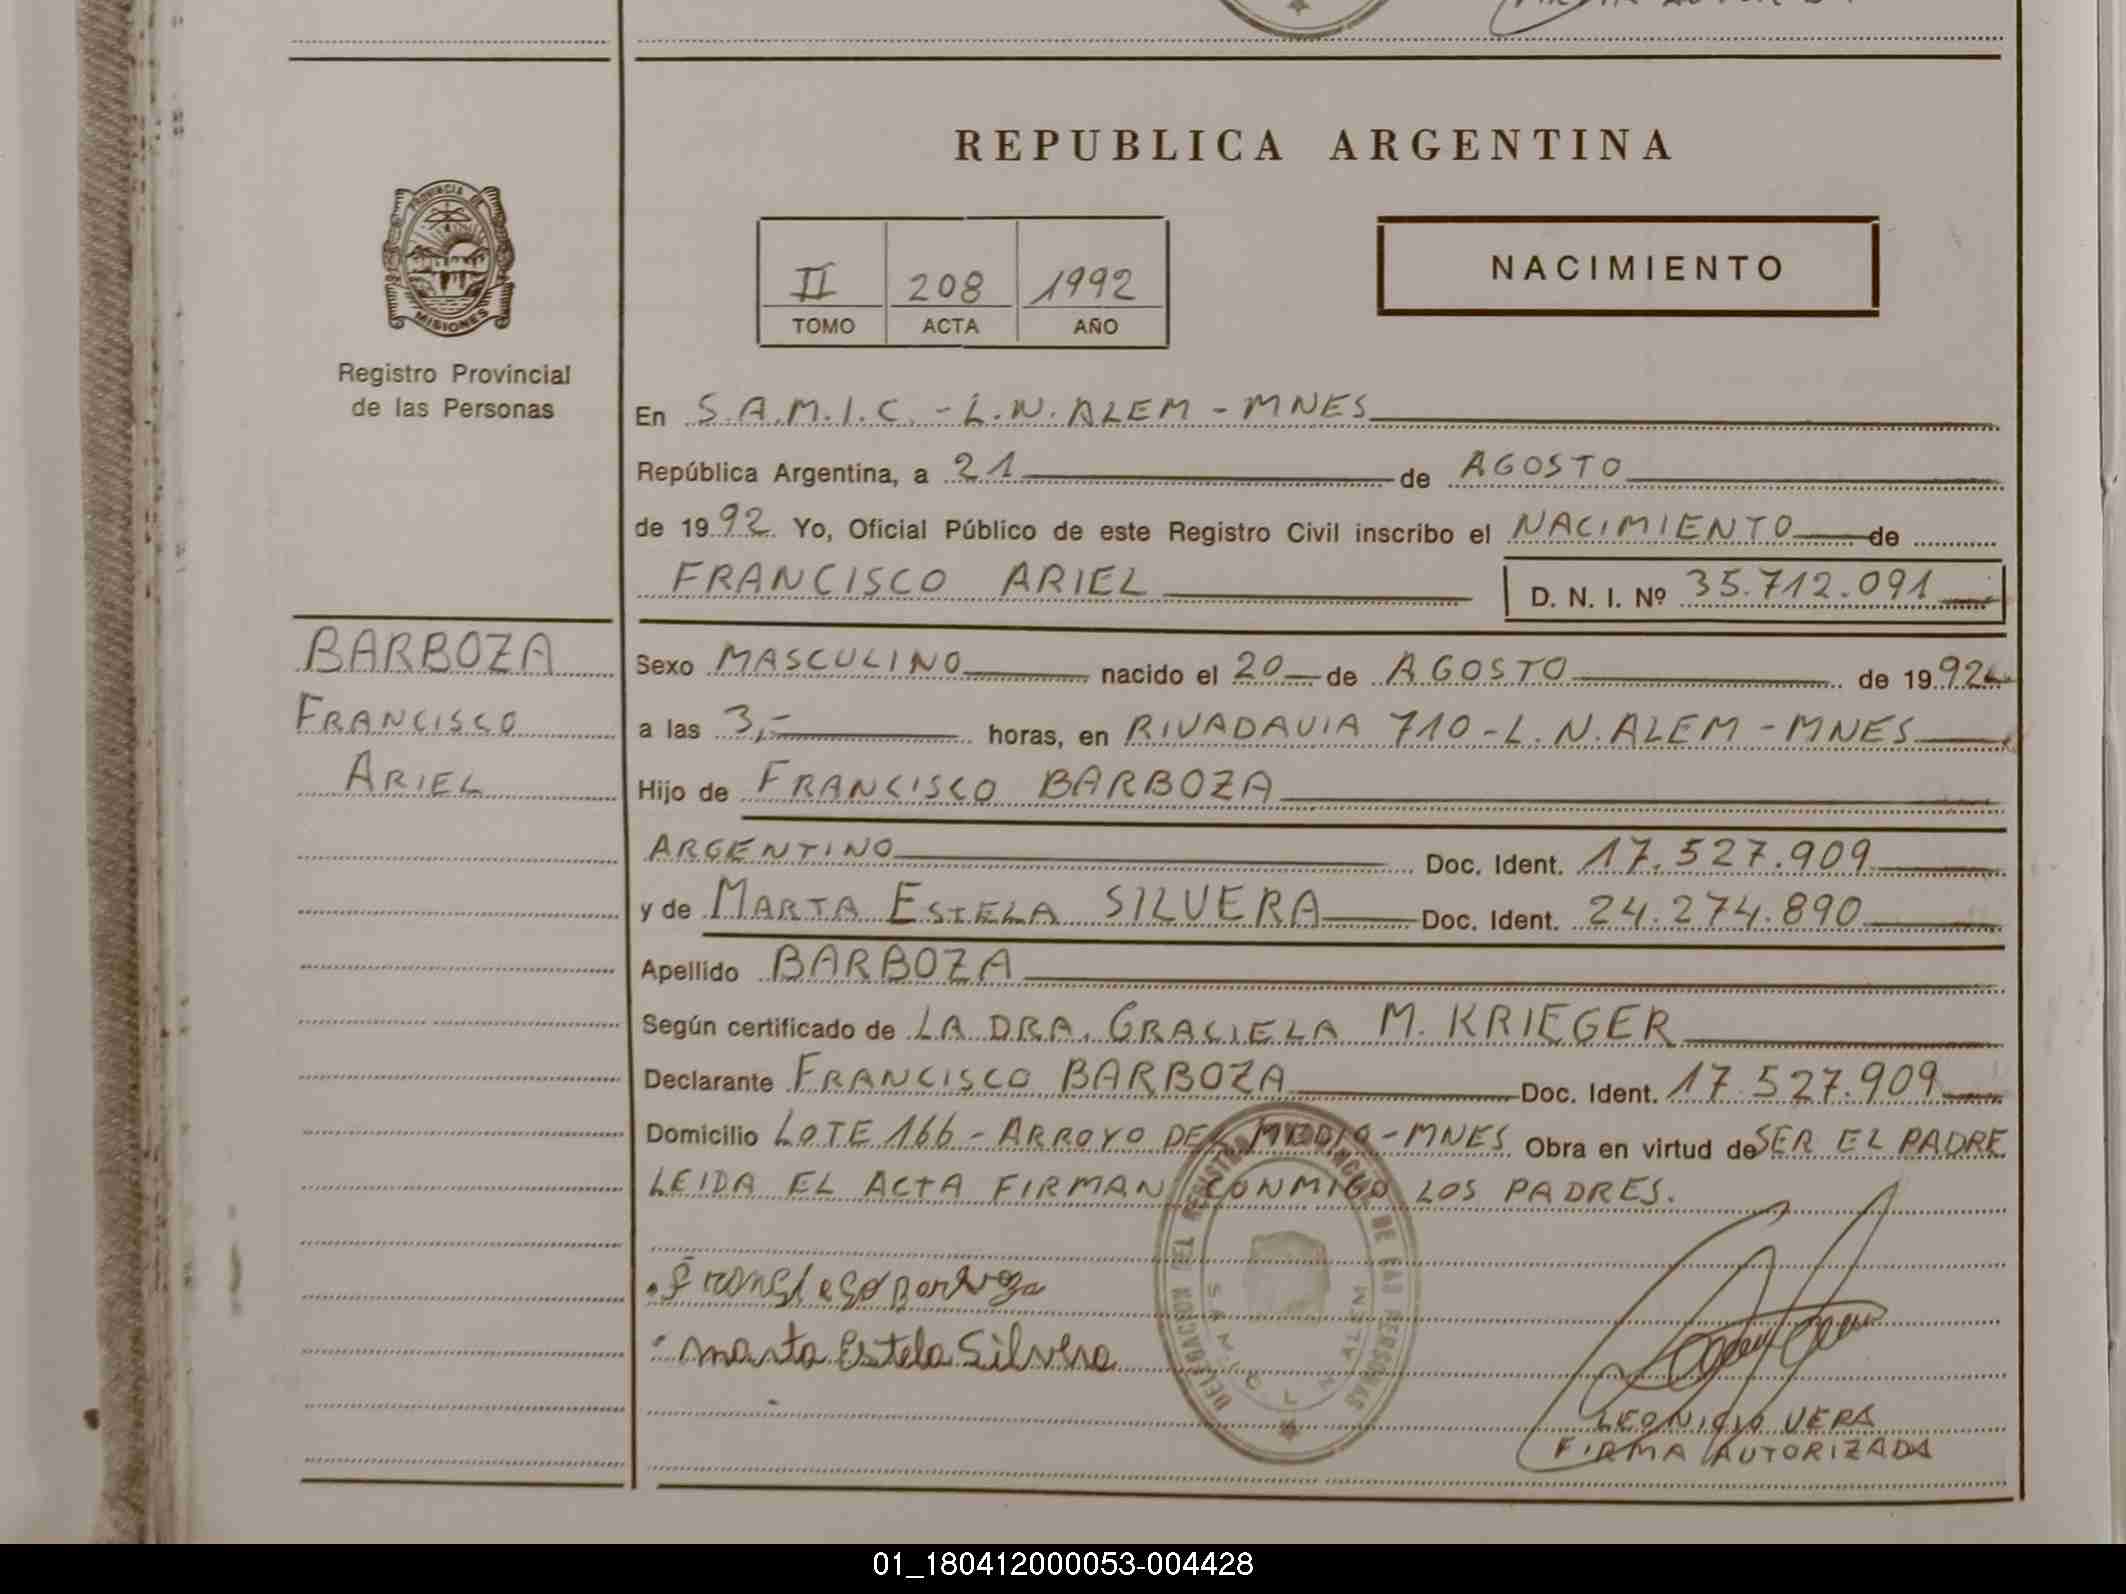 REPUBLICA ARGENTINA
PROVINCIA DE
MISIONES
Registro Provincial
de las Personas
II 208 1992
TOMO ACTA AÑO
NACIMIENTO
En S.A.M.I.C. - L.N. ALEM - MNES
República Argentina, a 21 de AGOSTO
de 1992 Yo, Oficial Público de este Registro Civil inscribo el NACIMIENTO de
FRANCISCO ARIEL D. N. I. Nº 35.712.091
BARBOZA
FRANCISCO
ARIEL
Sexo MASCULINO nacido el 20 de AGOSTO de 1992
a las 3,- horas, en RIVADAVIA 710 - L.N. ALEM - MNES
Hijo de FRANCISCO BARBOZA
ARGENTINO Doc. Ident. 17.527.909
y de MARTA ESTELA SILVERA Doc. Ident. 24.274.890
Apellido BARBOZA
Según certificado de LA DRA. GRACIELA M. KRIEGER
Declarante FRANCISCO BARBOZA Doc. Ident. 17.527.909
Domicilio LOTE 166 - ARROYO DEL MEDIO - MNES Obra en virtud de SER EL PADRE
LEIDA EL ACTA FIRMAN CONMIGO LOS PADRES.
Marta Estela Silvera
DELEGACION DEL REGISTRO PROVINCIAL DE LAS PERSONAS
S.A.M.I.C. L. N. ALEM
LEONICIO VERA
FIRMA AUTORIZADA
01_180412000053-004428